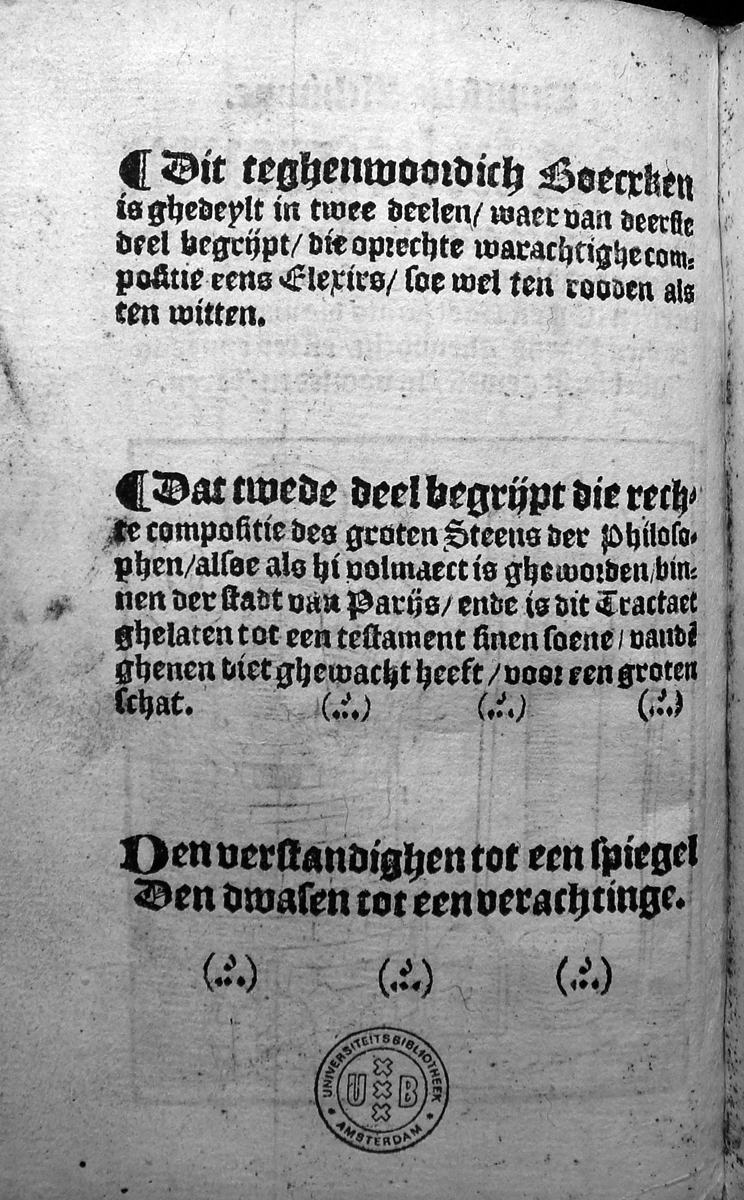 ¶ Dit teghenwoordich Boecxken
is ghedeylt in twee deelen/ waer van deerste
deel begrijpt/ die oprechte warachtighe com-
positie eens Elexirs/ soe wel ten rooden als
ten witten.
¶ Dat twede deel begrijpt die rech-
te compositie des groten Steens der Philoso-
phen/ alsoe als hi volmaect is gheworden/ bin-
nen der stadt van Parijs/ ende is dit Tractaet
ghelaten tot een testament sinen soene/ vandē
ghenen diet ghewacht heeft/ voor een groten
schat.
Den verstandighen tot een spiegel
Den dwasen tot een verachtinge.
UNIVERSITEITSBIBLIOTHEEK
U B
AMSTERDAM